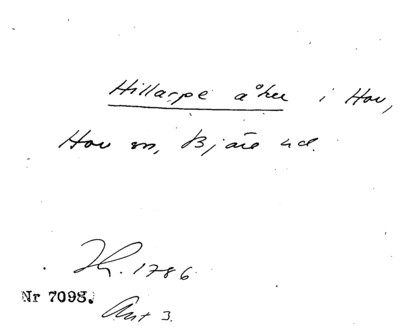 Hillarpe åker i Hov,
Hov sn, Bjäre hd.
Th. 1786
Nr 7098.
Ant 3.